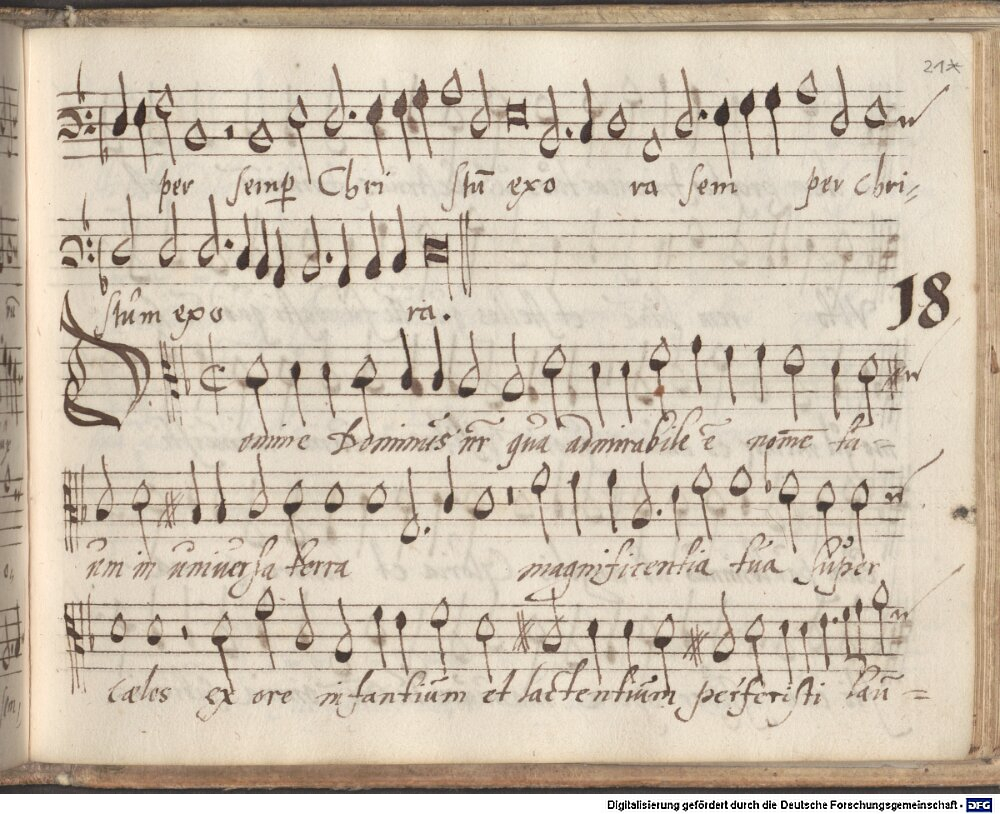 21*
per semp̱ Chri stū exo ra sem per Chri-
stum exo ra.
18
Domine Dominus nr̄ qua admirabile ē nomē tu
um in universa terra magnificentia tua super
Cæles ex ore infantium et lactentium perferisti lau=
Digitalisierung gefördert durch die Deutsche Forschungsgemeinschaft - DFG